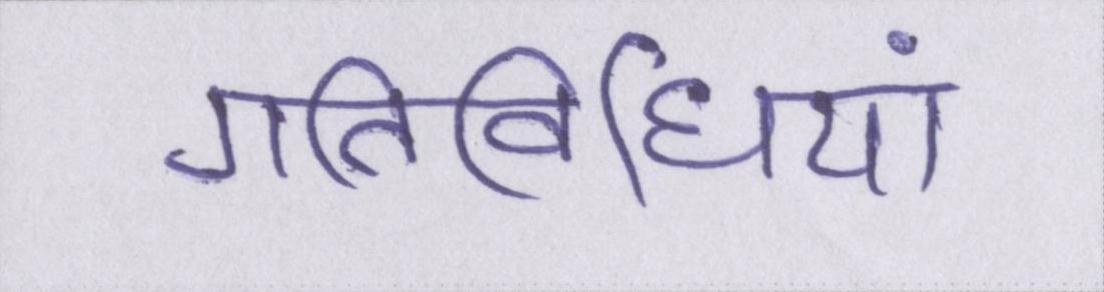 गतिविधियां